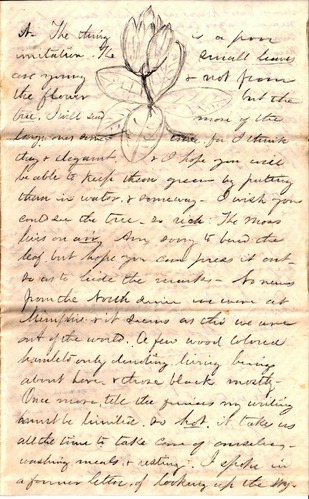 The thing is a poor
imitation. The small leaves
are young & not from
the flower but the
tree. I will send more of the
large ones some time for I think
they elegant, & I hope you will
be able to keep them green by putting
them in water, & someway - I wish you
could see the tree - so rich. The moss
lies on a Am sorry to bend the
leaf but hope you can press it out
so as to hide the marks - No news
from the North since we were at
Memphis & it seems as tho we are
out of the world. A few wood colored
hamlets only denoting living beings
about here & those black mostly -
Once more, till the my writing
must be limited, so hot, it take us
all the time to take care of ourselves -
washing, meals, & resting. I spoke in
a former letter, of looking up the